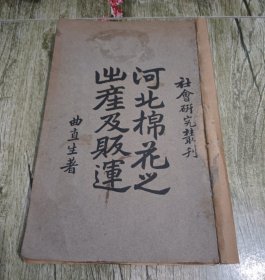 社會研究叢刊
河北棉花之
出產及販運
曲直生著